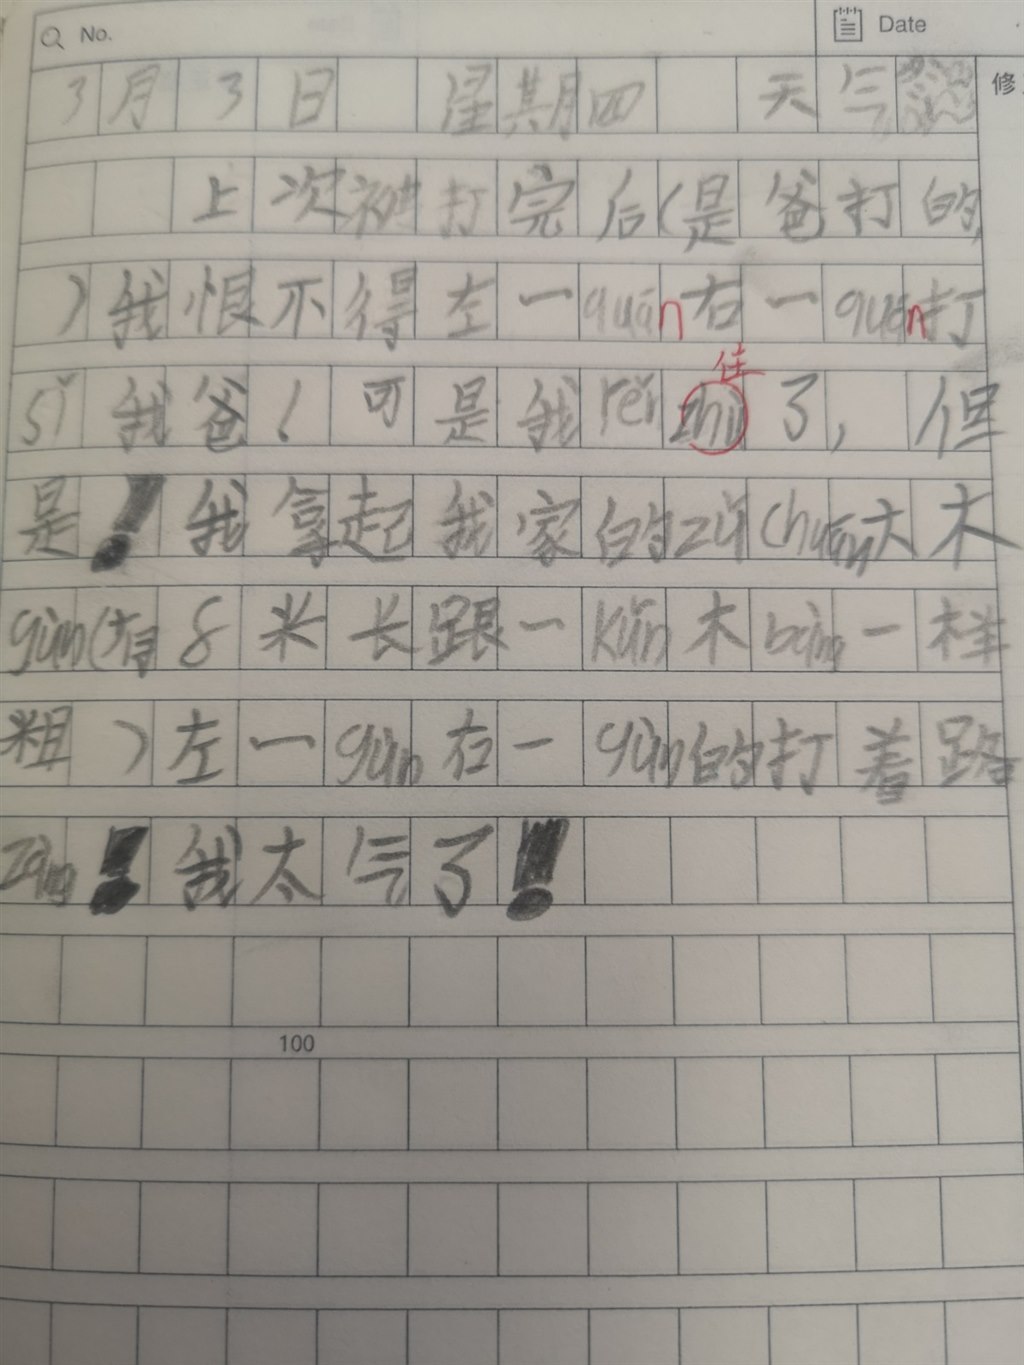 No. Date
3月3日 星期四 天气 修
上次被打完后(是爸打的
)我恨不得左一quán右一quán打
sǐ我爸！可是我rěn zhù了,但
住
是！我拿起我家的zǔ chuán大木
gùn(有8米长跟一kǔn木bàng一样
粗)左一gùn右一gùn的打着路
zāng！我太气了！
100